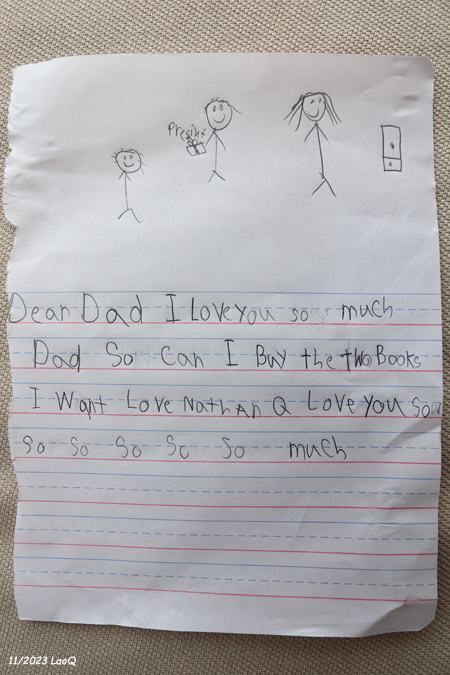 Presinx
Dear Dad I Love you so much
Dad So Can I Buy the two Books
I Want Love Nathan Q Love you so
so so so so so much
11/2023 LaoQ